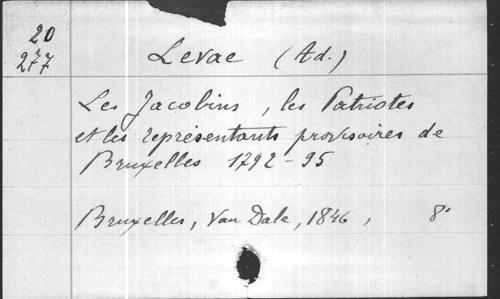 20
277
Levae (Ad.)
Les Jacobins, les Patriotes
et les représentants provisoires de
Bruxelles 1792-95
Bruxelles, Van Dale, 1846, 8°